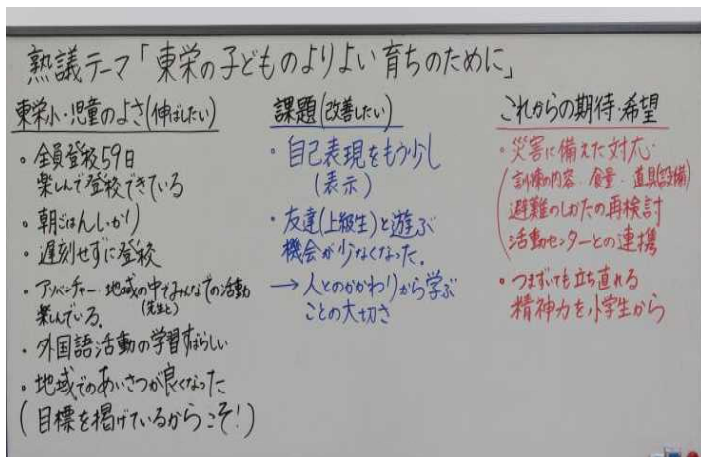 熟議テーマ「東栄の子どものよりよい育ちのために」
東栄小・児童のよさ(伸ばしたい)
・全員登校59日
楽しんで登校できている
・朝ごはんしっかり
・遅刻せずに登校
・アドベンチャー・地域の中でみんなでの活動
(先生と)
楽しんでいる.
・外国語活動の学習すばらしい
・地域でのあいさつが良くなった
(目標を掲げているからこそ!)
課題(改善したい)
・自己表現をもう少し
(表示)
・友達(上級生)と遊ぶ
機会が少なくなった.
→人とのかかわりから学ぶ
ことの大切さ
これからの期待・希望
・災害に備えた対応
(訓練の内容・食量・道具(設備)
避難のしかたの再検討
活動センターとの連携)
・つまずいても立ち直れる
精神力を小学生から